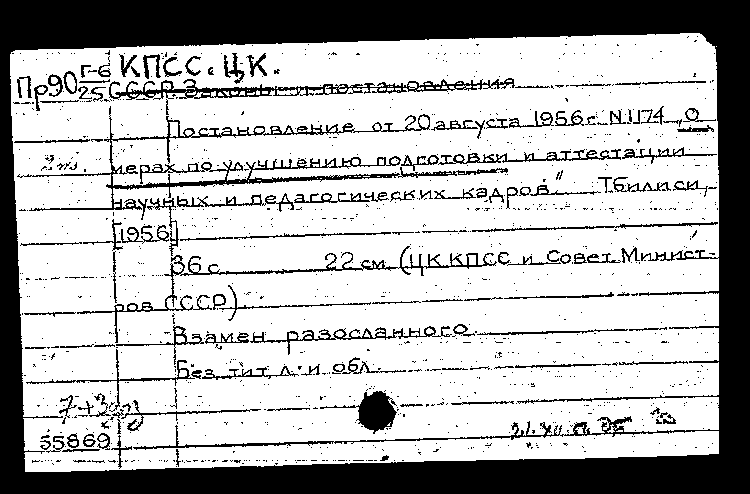 Г-6 КПСС. ЦК.
Пр90 25 СССР. Законы и постановления
Постановление от 20 августа 1956 г. N.1174 „О
2 экз. мерах по улучшению подготовки и аттестации
научных и педагогических кадров". Тбилиси,
[1956]
36 с. 22 см. (ЦК КПСС и Совет Минист-
ров СССР).
Взамен разосланного.
Без тит. л. и обл.
55869